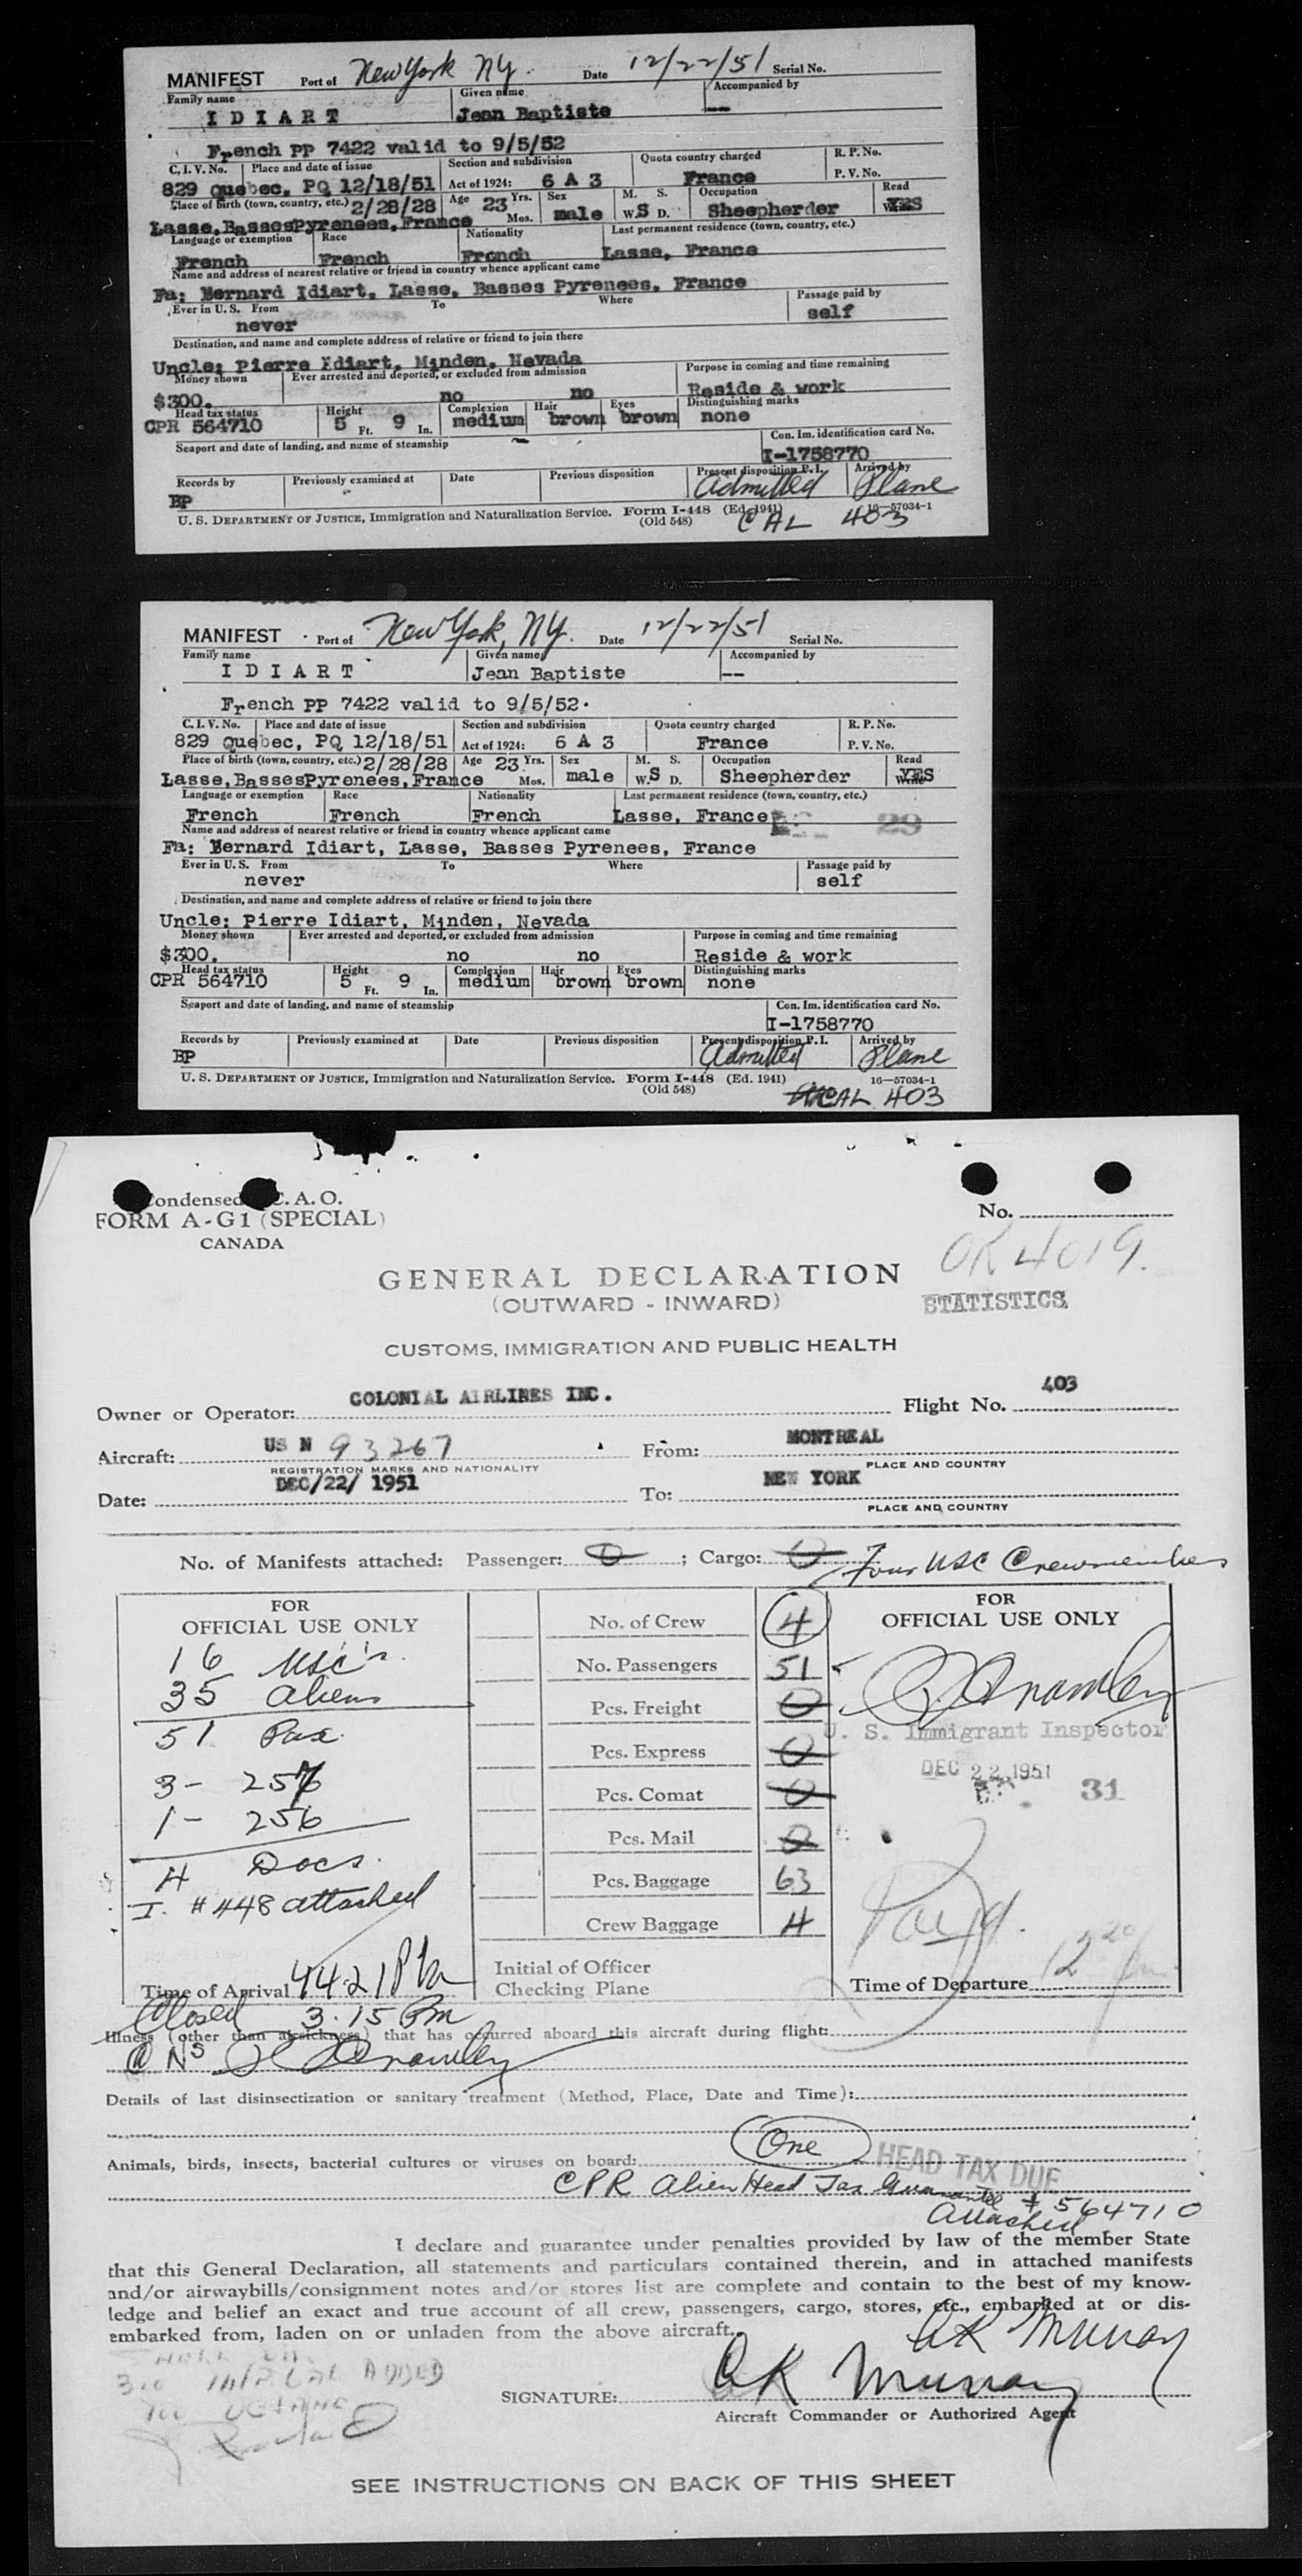 MANIFEST Port of New York NY. Date 12/22/51 Serial No.
Family name Given name Accompanied by
I D I A R T Jean Baptiste --
French PP 7422 valid to 9/5/52
C. I. V. No. Place and date of issue Section and subdivision Quota country charged R. P. No.
829 Quebec, PQ 12/18/51 Act of 1924: 6 A 3 France P. V. No.
Place of birth (town, country, etc.) 2/28/28 Age 23 Yrs. Sex M. S. Occupation Read
Lasse,BassesPyrenees,France Mos. male W.S D. Sheepherder YES
Language or exemption Race Nationality Last permanent residence (town, country, etc.)
French French French Lasse, France
Name and address of nearest relative or friend in country whence applicant came
Fa: Bernard Idiart, Lasse, Basses Pyrenees, France
Ever in U. S. From To Where Passage paid by
never self
Destination, and name and complete address of relative or friend to join there
Uncle: Pierre Idiart, Minden, Nevada
Money shown Ever arrested and deported, or excluded from admission Purpose in coming and time remaining
$300. no no Reside & work
Head tax status Height Complexion Hair Eyes Distinguishing marks
CPR 564710 5 Ft. 9 In. medium brown brown none
Seaport and date of landing, and name of steamship Con. Im. identification card No.
I-1758770
Records by Previously examined at Date Previous disposition Present disposition P. I. Arrived by
BP Admitted Plane
U. S. DEPARTMENT OF JUSTICE, Immigration and Naturalization Service. Form I-448 (Ed. 1941) 16—57034-1
(Old 548) CAL 403
MANIFEST Port of New York, NY. Date 12/22/51 Serial No.
Family name Given name Accompanied by
I D I A R T Jean Baptiste --
French PP 7422 valid to 9/5/52.
C. I. V. No. Place and date of issue Section and subdivision Quota country charged R. P. No.
829 Quebec, PQ 12/18/51 Act of 1924: 6 A 3 France P. V. No.
Place of birth (town, country, etc.) 2/28/28 Age 23 Yrs. Sex M. S. Occupation Read
Lasse,BassesPyrenees,France Mos. male W.S D. Sheepherder Write YES
Language or exemption Race Nationality Last permanent residence (town, country, etc.)
French French French Lasse, France 29
Name and address of nearest relative or friend in country whence applicant came
Fa: Bernard Idiart, Lasse, Basses Pyrenees, France
Ever in U. S. From To Where Passage paid by
never self
Destination, and name and complete address of relative or friend to join there
Uncle: Pierre Idiart, Minden, Nevada
Money shown Ever arrested and deported, or excluded from admission Purpose in coming and time remaining
$300. no no Reside & work
Head tax status Height Complexion Hair Eyes Distinguishing marks
CPR 564710 5 Ft. 9 In. medium brown brown none
Seaport and date of landing, and name of steamship Con. Im. identification card No.
I-1758770
Records by Previously examined at Date Previous disposition Present disposition P. I. Arrived by
BP Admitted Plane
U. S. DEPARTMENT OF JUSTICE, Immigration and Naturalization Service. Form I-448 (Ed. 1941) 16—57034-1
(Old 548) CAL 403
Condensed C. A. O.
FORM A-G1 (SPECIAL) No.
CANADA OK 4019.
GENERAL DECLARATION
(OUTWARD - INWARD) STATISTICS
CUSTOMS, IMMIGRATION AND PUBLIC HEALTH
Owner or Operator: COLONIAL AIRLINES INC. Flight No. 403
Aircraft: US N 93267 From: MONTREAL
REGISTRATION MARKS AND NATIONALITY PLACE AND COUNTRY
Date: DEC/22/ 1951 To: NEW YORK
PLACE AND COUNTRY
No. of Manifests attached: Passenger: 0 ; Cargo: 0 Four USC Crewmembers
FOR OFFICIAL USE ONLY
16 USC's
35 Aliens
51 Pax.
3- 257
1- 256
4 Docs.
I. #448 attached
Time of Arrival 442 1 PM
Closed 3.15 PM
No. of Crew 4
No. Passengers 51
Pcs. Freight 0
Pcs. Express 0
Pcs. Comat 0
Pcs. Mail 0
Pcs. Baggage 63
Crew Baggage 4
Initial of Officer
Checking Plane
FOR OFFICIAL USE ONLY
U. S. Immigrant Inspector
DEC 22 1951 31
Time of Departure 12 20 pm
Illness (other than airsickness) that has occurred aboard this aircraft during flight:
Details of last disinsectization or sanitary treatment (Method, Place, Date and Time):
Animals, birds, insects, bacterial cultures or viruses on board: One HEAD TAX DUE
CPR Alien Head Tax Guarantee # 564710
Attached
I declare and guarantee under penalties provided by law of the member State
that this General Declaration, all statements and particulars contained therein, and in attached manifests
and/or airwaybills/consignment notes and/or stores list are complete and contain to the best of my know-
ledge and belief an exact and true account of all crew, passengers, cargo, stores, etc., embarked at or dis-
embarked from, laden on or unladen from the above aircraft.
AK Murray
SIGNATURE: AK Murray
Aircraft Commander or Authorized Agent
SEE INSTRUCTIONS ON BACK OF THIS SHEET